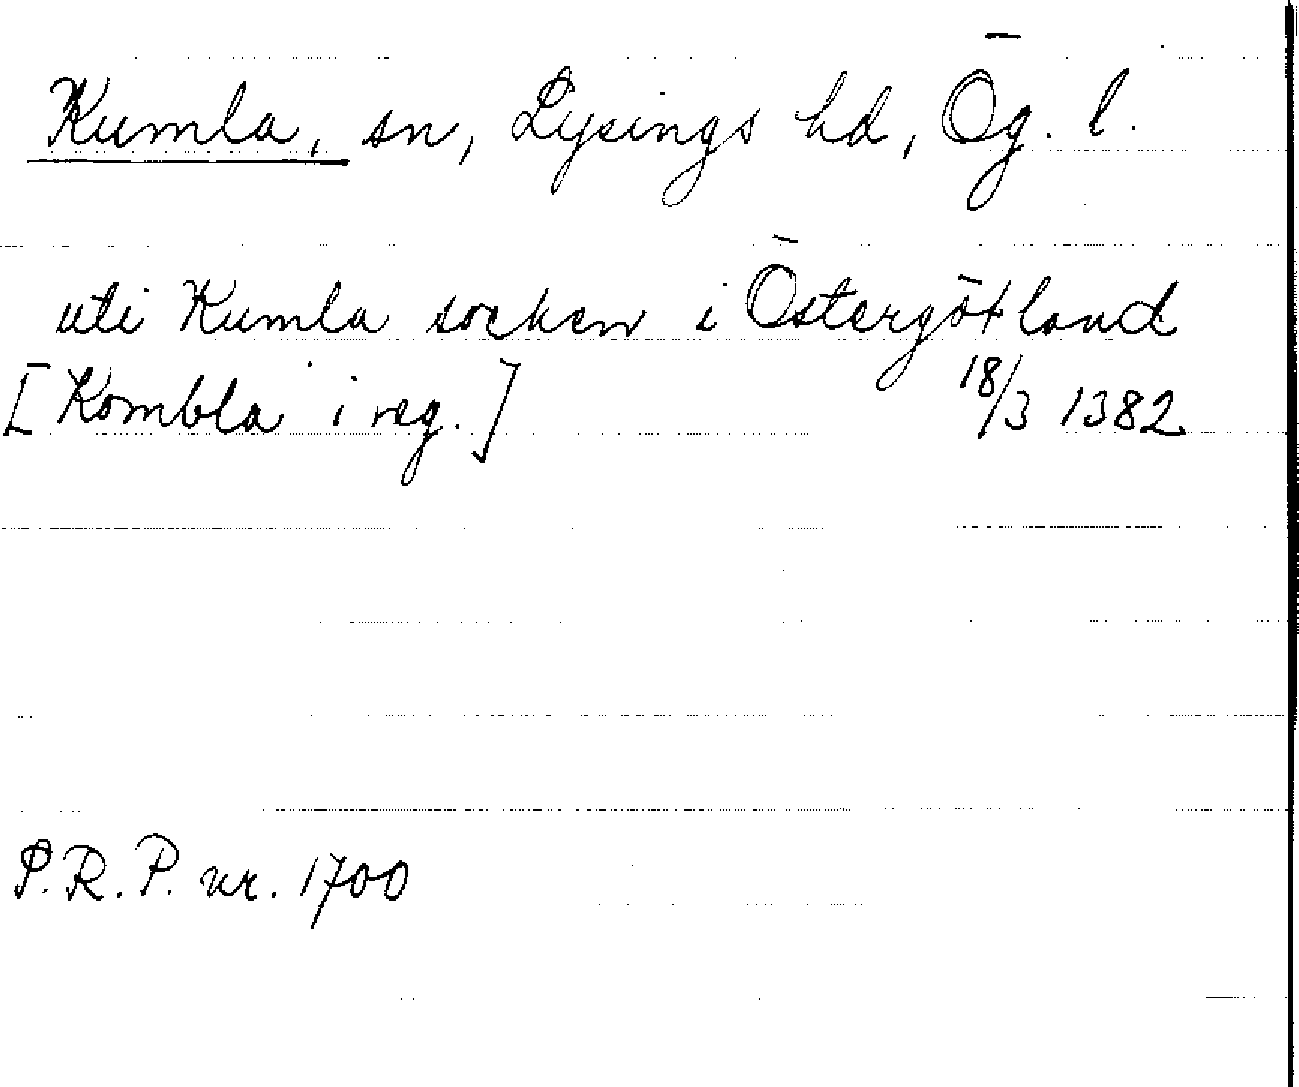 Kumla, sn, Lysings hd, Ög. l.
uti Kumla socken i Östergötland
[Kombla i reg.] 18/3 1382
P.R.P. nr. 1700